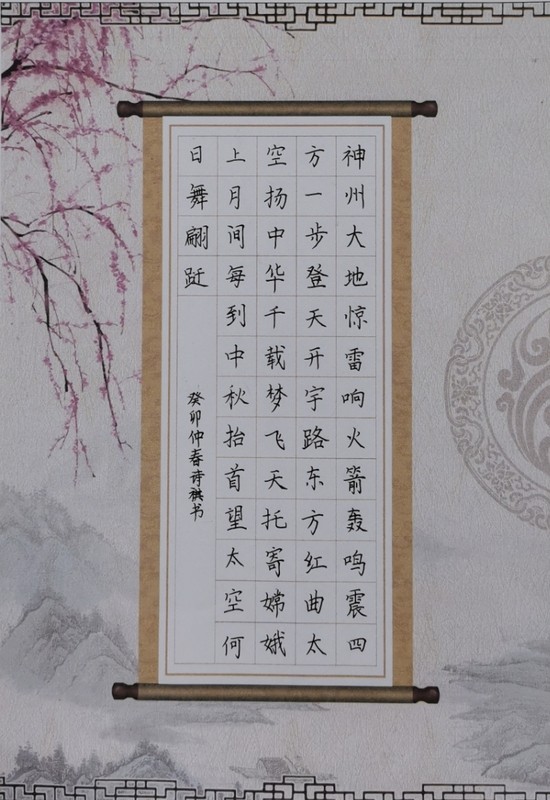 神州大地惊雷响火箭轰鸣震四
方一步登天开宇路东方红曲太
空扬中华千载梦飞天托寄嫦娥
上月间每到中秋抬首望太空何
日舞翩跹
癸卯仲春诗祺书